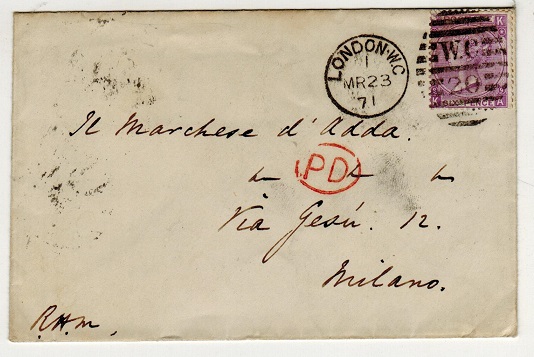 LONDON·W.C
1
MR23
71
W.C
20
SIXPENCE
K
K
A
Il Marchese d'Adda.
PD
Via Gesú. 12.
Milano.
R.H.M.